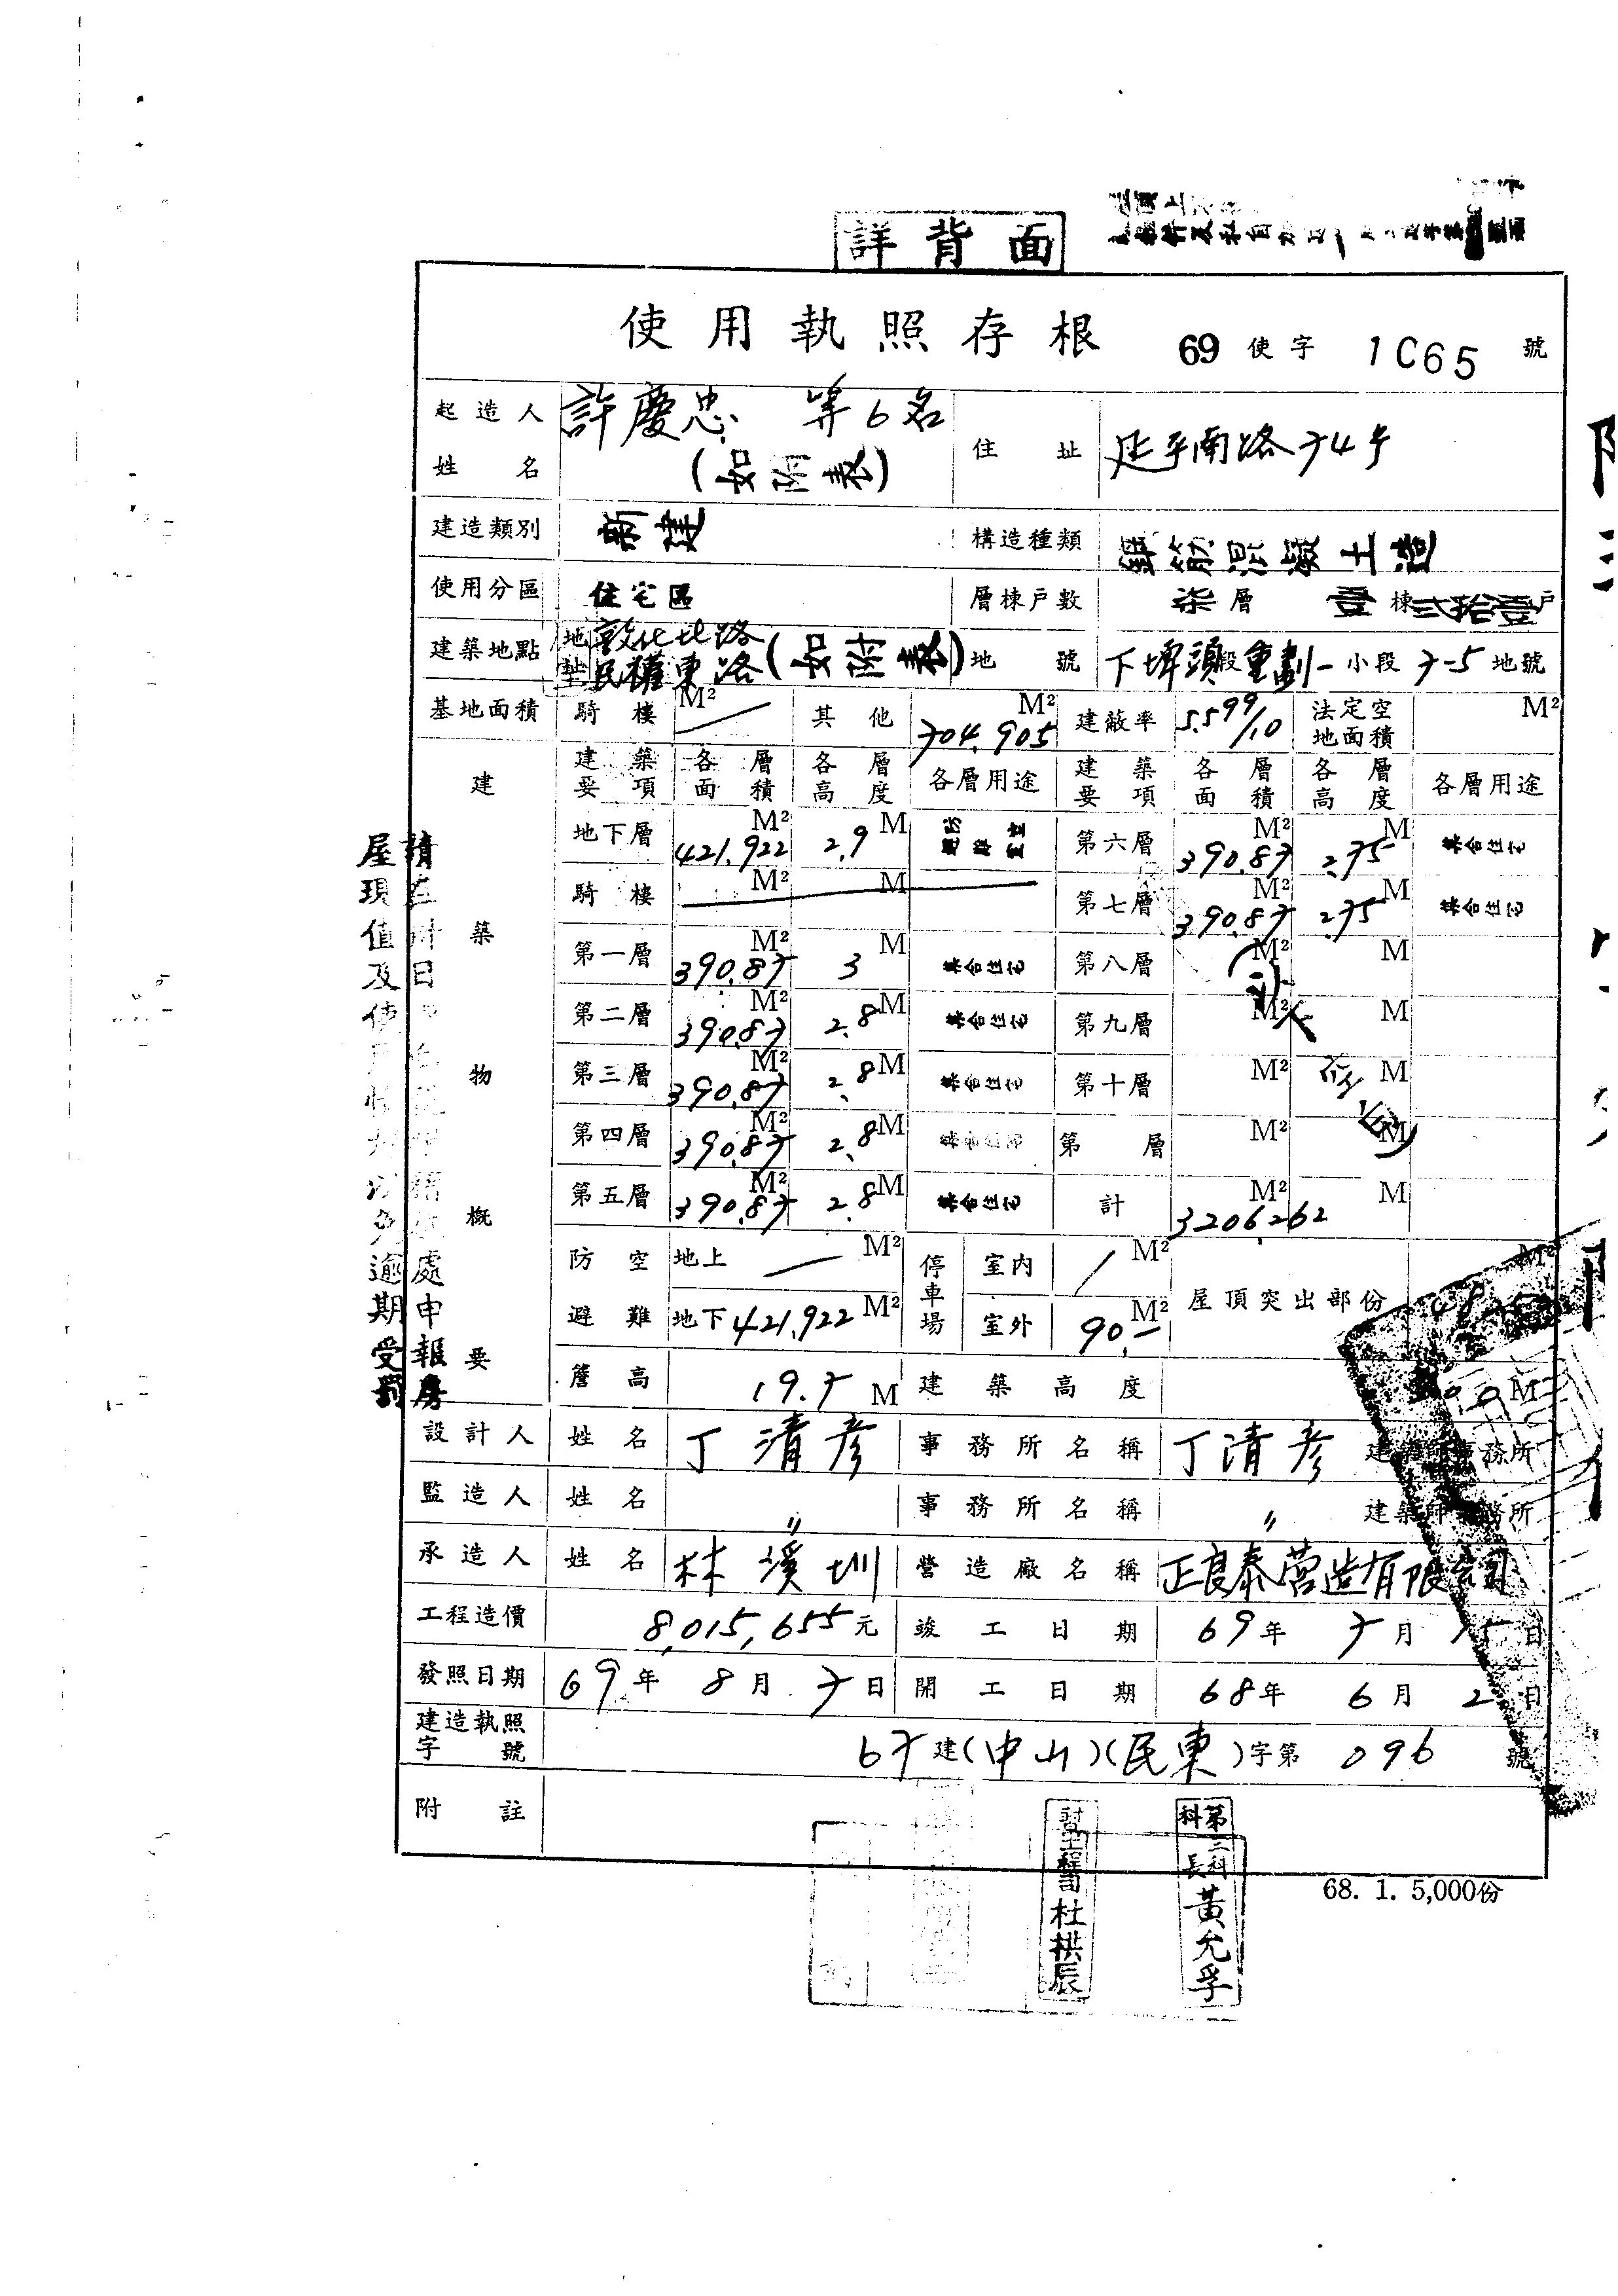 詳背面
使用執照存根 69 使字 1C65 號
起造人姓名 許慶忠 等6名 (如附表) 住址 延平南路74号
建造類別 新建 構造種類 鋼筋混凝土造
使用分區 住宅區 層棟戶數 柒層 壹棟 弍拾壹戶
建築地點 地址 敦化北路 民權東路(如附表) 地號 下埤頭段重劃一小段 7-5 地號
基地面積 騎樓 M² 其他 704.905 M² 建蔽率 5.599/10 法定空地面積 M²
建築物概要
建築要項 各層面積 各層高度 各層用途 建築要項 各層面積 各層高度 各層用途
地下層 421.922 M² 2.9 M 第六層 390.87 M² 2.75 M 集合住宅
騎樓 M² M 第七層 390.87 M² 2.75 M 集合住宅
第一層 390.87 M² 3 M 集合住宅 第八層 M² M
第二層 390.87 M² 2.8 M 集合住宅 第九層 M² M
第三層 390.87 M² 2.8 M 集合住宅 第十層 M² M
第四層 390.87 M² 2.8 M 第 層 M² M
第五層 390.87 M² 2.8 M 集合住宅 計 3206.262 M² M
(以下空白)
防空避難 地上 M² 停車場 室內 M² 屋頂突出部份 M²
地下 421.922 M² 室外 90.- M²
簷高 19.7 M 建築高度 M
設計人 姓名 丁清彥 事務所名稱 丁清彥 建築師事務所
監造人 姓名 〃 事務所名稱 〃 建築師事務所
承造人 姓名 林溪圳 營造廠名稱 正良泰營造有限公司
工程造價 8,015,655元 竣工日期 69年 7月 日
發照日期 69年 8月 7日 開工日期 68年 6月 2 日
建造執照字號 67建(中山)(民東)字第 096 號
附註
68. 1. 5,000份
第二科科長 黃允孚
杜拱辰
處申報房
逾期受罰